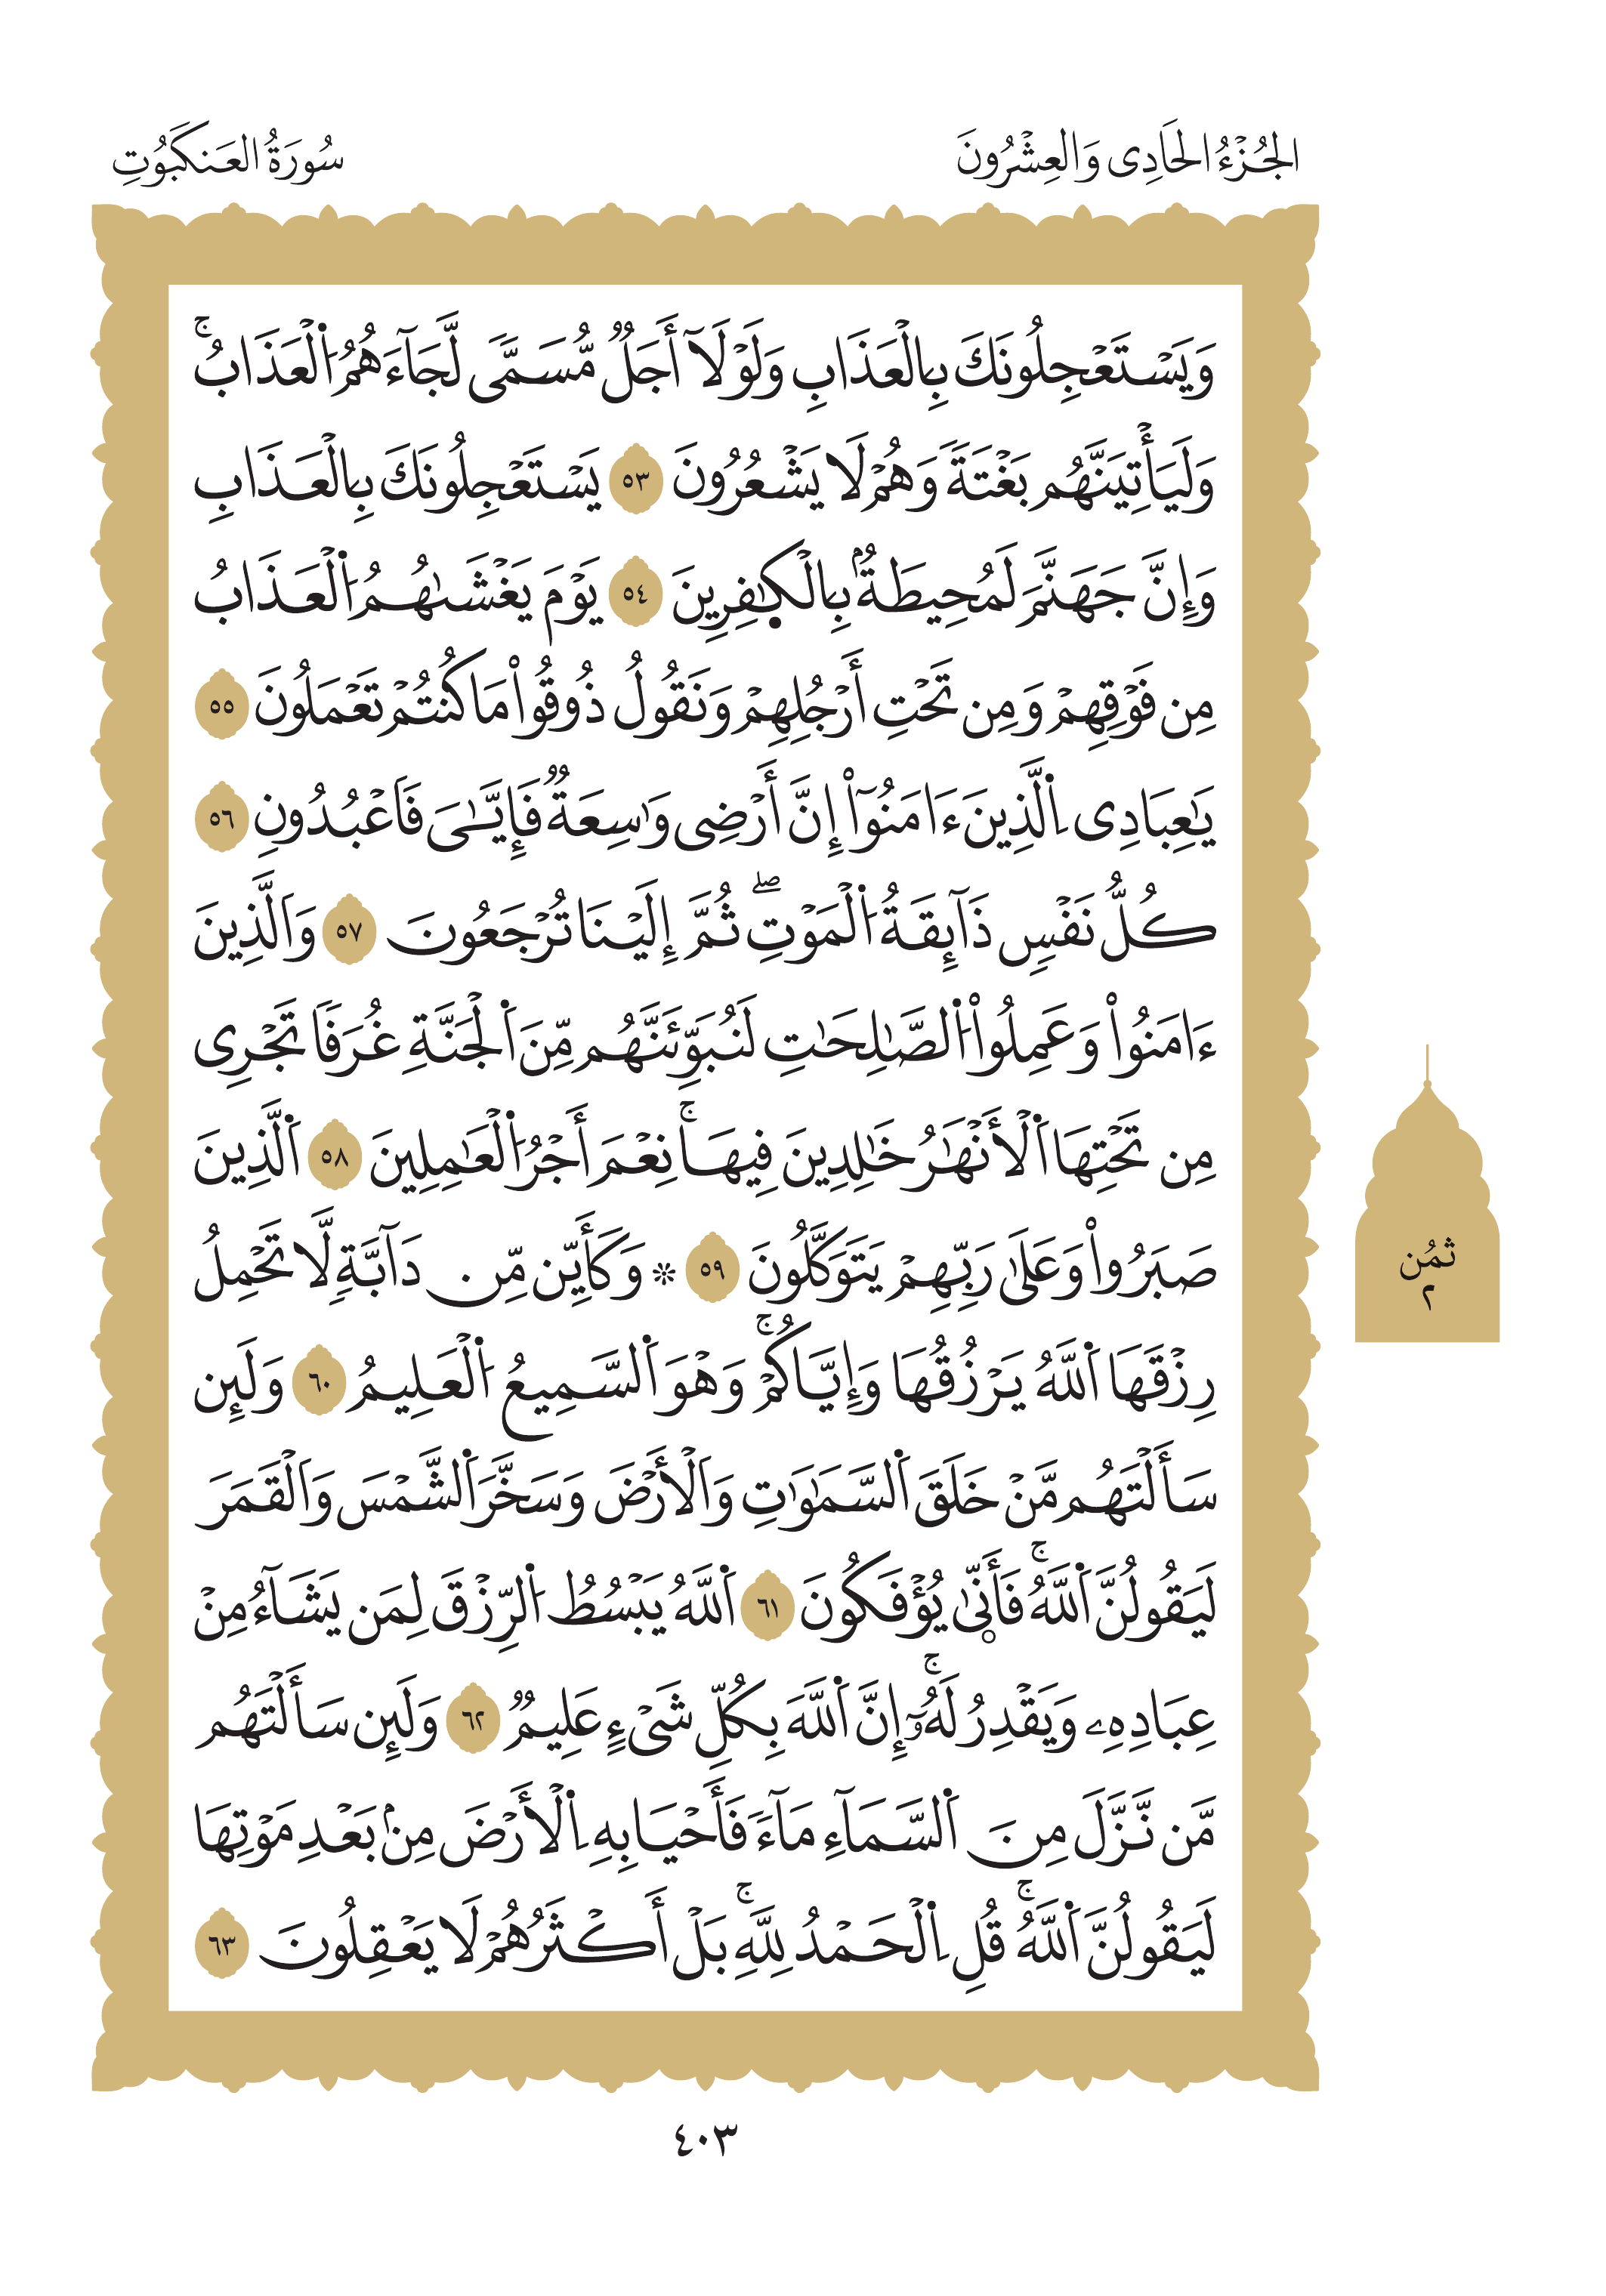 الجُزْءُ الحَادِى وَالعِشْرُونَ
سُورَةُ العَنكَبُوتِ
وَيَسْتَعْجِلُونَكَ بِالْعَذَابِ وَلَوْلَآ أَجَلٌ مُّسَمًّى لَّجَآءَهُمُ اُ۬لْعَذَابُۚ
وَلَيَأْتِيَنَّهُم بَغْتَةً وَهُمْ لَا يَشْعُرُونَ ٥٣ يَسْتَعْجِلُونَكَ بِالْعَذَابِ
وَإِنَّ جَهَنَّمَ لَمُحِيطَةُۢ بِالْكٰٜفِرِينَ ٥٤ يَوْمَ يَغْشَىٰهُمُ اُ۬لْعَذَابُ
مِن فَوْقِهِمْ وَمِن تَحْتِ أَرْجُلِهِمْ وَنَقُولُ ذُوقُوا۟ مَا كُنتُمْ تَعْمَلُونَ ٥٥
يَٰعِبَادِى اِ۬لَّذِينَ ءَامَنُوٓا۟ إِنَّ أَرْضِى وَٰسِعَةٌ فَإِيَّٰىَ فَاَعْبُدُونِ ٥٦
كُلُّ نَفْسٍ ذَآئِقَةُ اُ۬لْمَوْتِۖ ثُمَّ إِلَيْنَا تُرْجَعُونَ ٥٧ وَاَلَّذِينَ
ءَامَنُوا۟ وَعَمِلُوا۟ اُ۬لصَّٰلِحَٰتِ لَنُبَوِّئَنَّهُم مِّنَ اَ۬لْجَنَّةِ غُرَفًا تَجْرِى
مِن تَحْتِهَا اَ۬لْأَنْهَٰرُ خَٰلِدِينَ فِيهَاۚ نِعْمَ أَجْرُ اُ۬لْعَٰمِلِينَ ٥٨ اَ۬لَّذِينَ
صَبَرُوا۟ وَعَلَىٰ رَبِّهِمْ يَتَوَكَّلُونَ ٥٩ ۞ وَكَأَيِّن مِّن دَآبَّةٍ لَّا تَحْمِلُ
رِزْقَهَا اَ۬للَّهُ يَرْزُقُهَا وَإِيَّاكُمْۚ وَهْوَ اَ۬لسَّمِيعُ اُ۬لْعَلِيمُ ٦٠ وَلَئِن
سَأَلْتَهُم مَّنْ خَلَقَ اَ۬لسَّمَٰوَٰتِ وَاَلْأَرْضَ وَسَخَّرَ اَ۬لشَّمْسَ وَاَلْقَمَرَ
لَيَقُولُنَّ اَ۬للَّهُۚ فَأَنّٜىٰ يُؤْفَكُونَ ٦١ اَ۬للَّهُ يَبْسُطُ اُ۬لرِّزْقَ لِمَن يَشَآءُ مِنْ
عِبَادِهِۦ وَيَقْدِرُ لَهُۥٓۚ إِنَّ اَ۬للَّهَ بِكُلِّ شَىْءٍ عَلِيمٌ ٦٢ وَلَئِن سَأَلْتَهُم
مَّن نَّزَّلَ مِنَ اَ۬لسَّمَآءِ مَآءً فَأَحْيَا بِهِ اِ۬لْأَرْضَ مِنۢ بَعْدِ مَوْتِهَا
لَيَقُولُنَّ اَ۬للَّهُۚ قُلِ اِ۬لْحَمْدُ لِلَّهِۚ بَلْ أَكْثَرُهُمْ لَا يَعْقِلُونَ ٦٣
ثُمُن
٢
٤٠٣